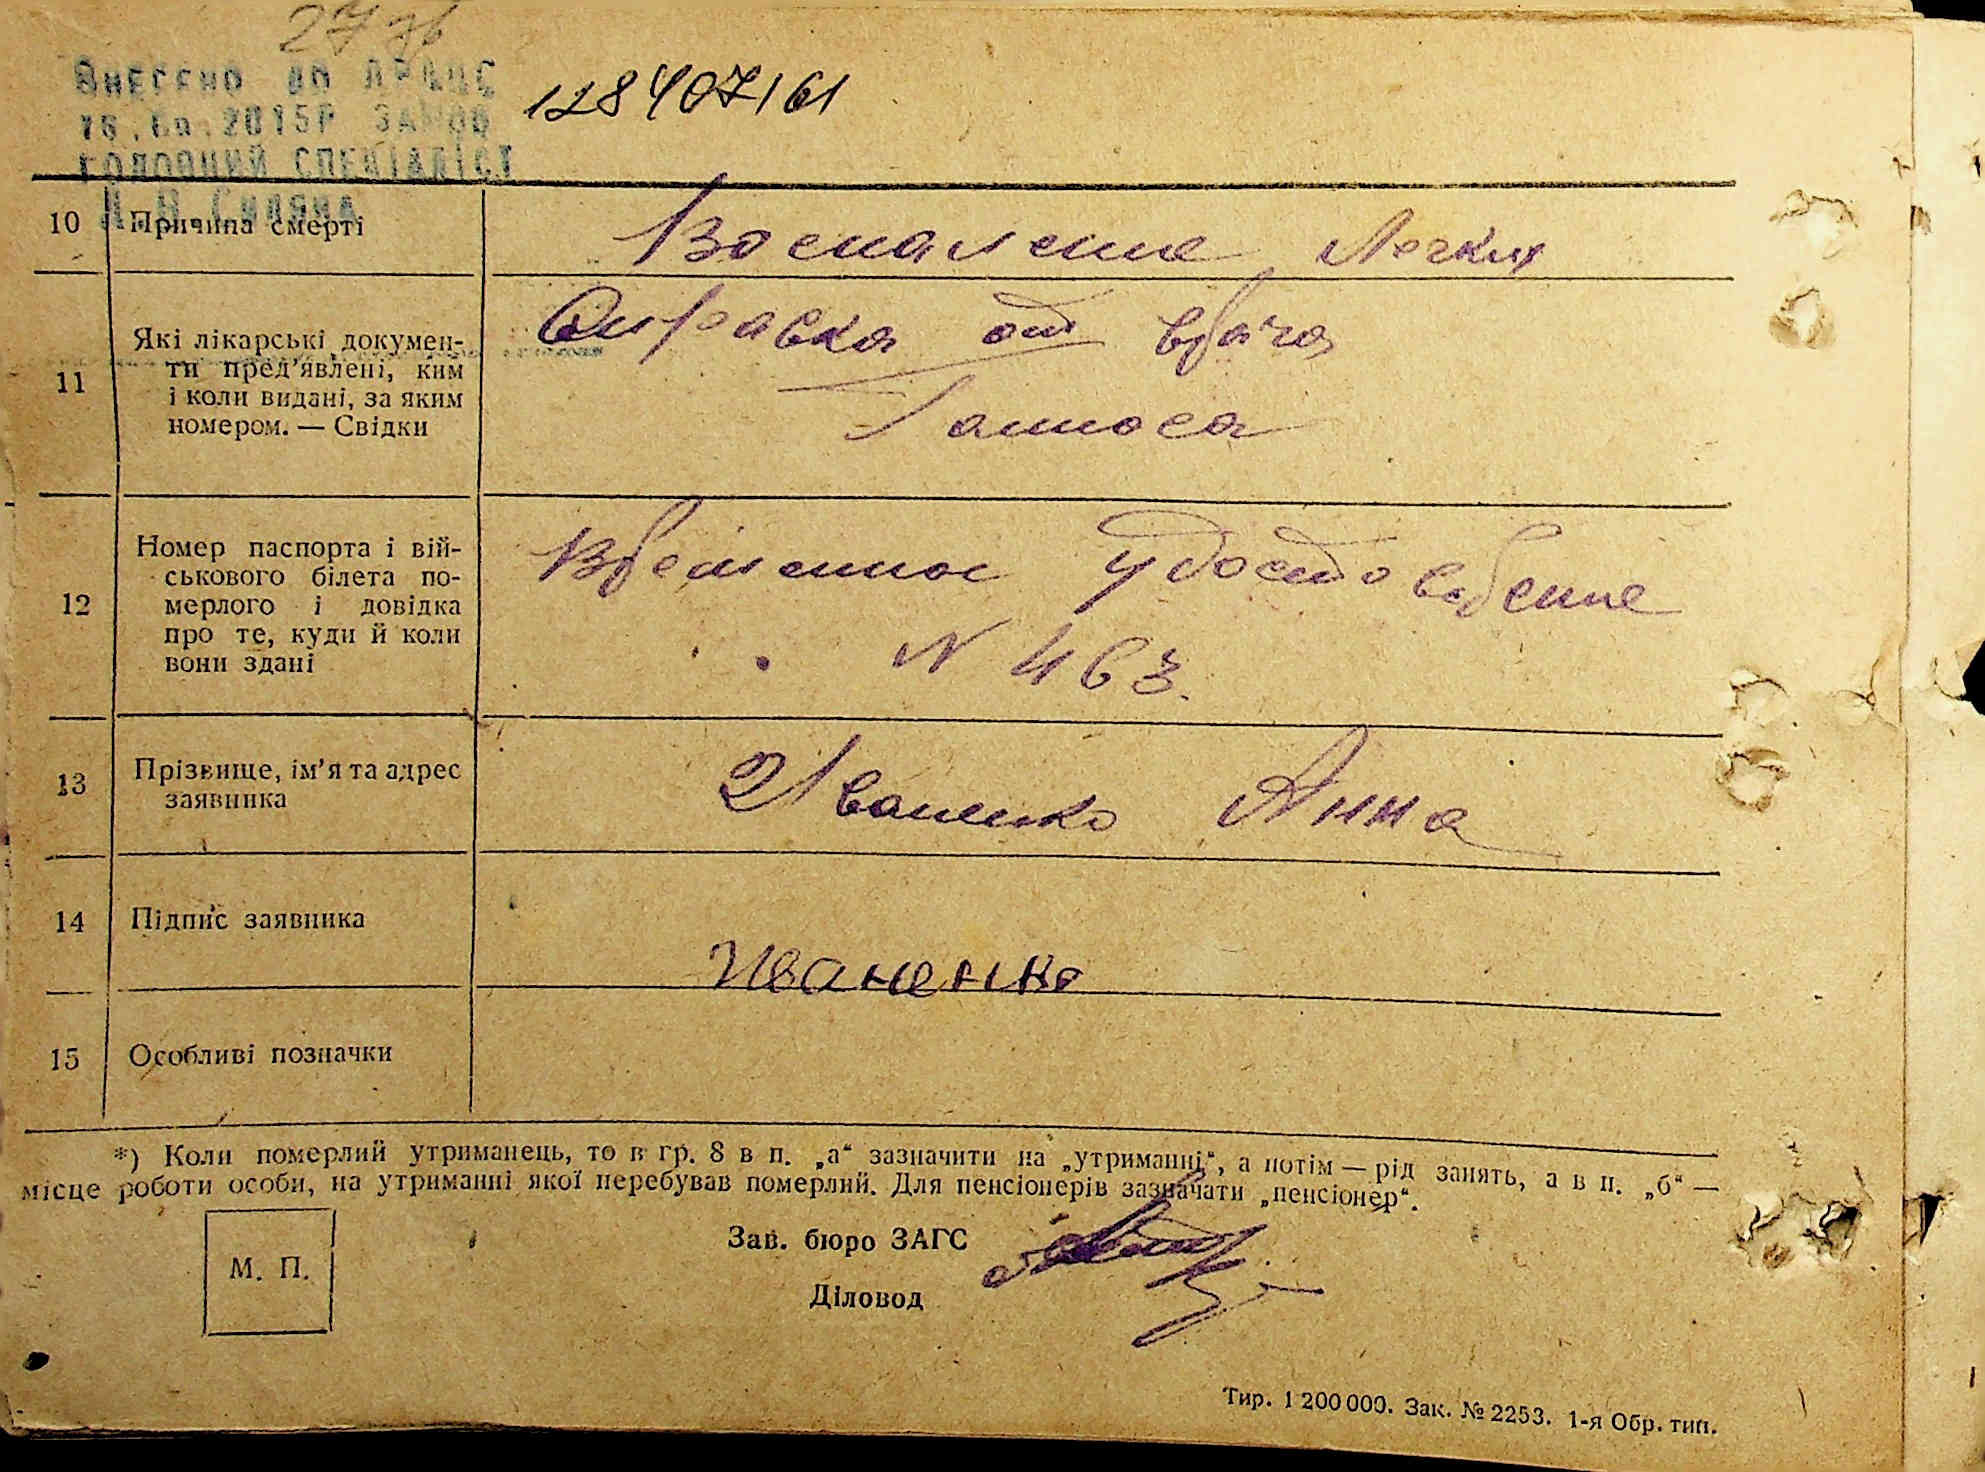 128407161
ГОЛОВНИЙ СПЕЦІАЛІСТ
10 Причина смерті Воспаление Легких
11 Які лікарські докумен-
ти пред'явлені, ким
і коли видані, за яким
номером. — Свідки
Справка от врача
12 Номер паспорта і вій-
ськового білета по-
мерлого і довідка
про те, куди й коли
вони здані
Временное удостоверение
N 463.
13 Прізвище, ім'я та адрес
заявника
Иваненко Анна
14 Підпис заявника
Иваненко
15 Особливі позначки
*) Коли померлий утриманець, то в гр. 8 в п. „а“ зазначити на „утриманні“, а потім — рід занять, а в п. „б“ —
місце роботи особи, на утриманні якої перебував померлий. Для пенсіонерів зазначати „пенсіонер“.
М. П.
Зав. бюро ЗАГС
Діловод
Тир. 1 200 000. Зак. № 2253. 1-я Обр. тип.